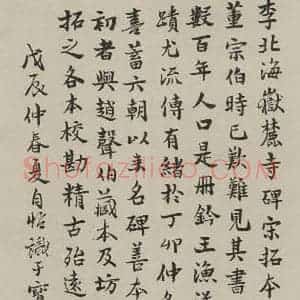 李北海嶽麓寺碑宋拓本
董宗伯時已歎難見其書
數百年人口是冊鈐王漁洋
蹟尤流傳有緒於丁卯仲
善蓄六朝以來名碑善本
初者與趙聲伯藏本及坊
拓之各本校勘精古殆遠
戊辰仲春夏自怡識于寶